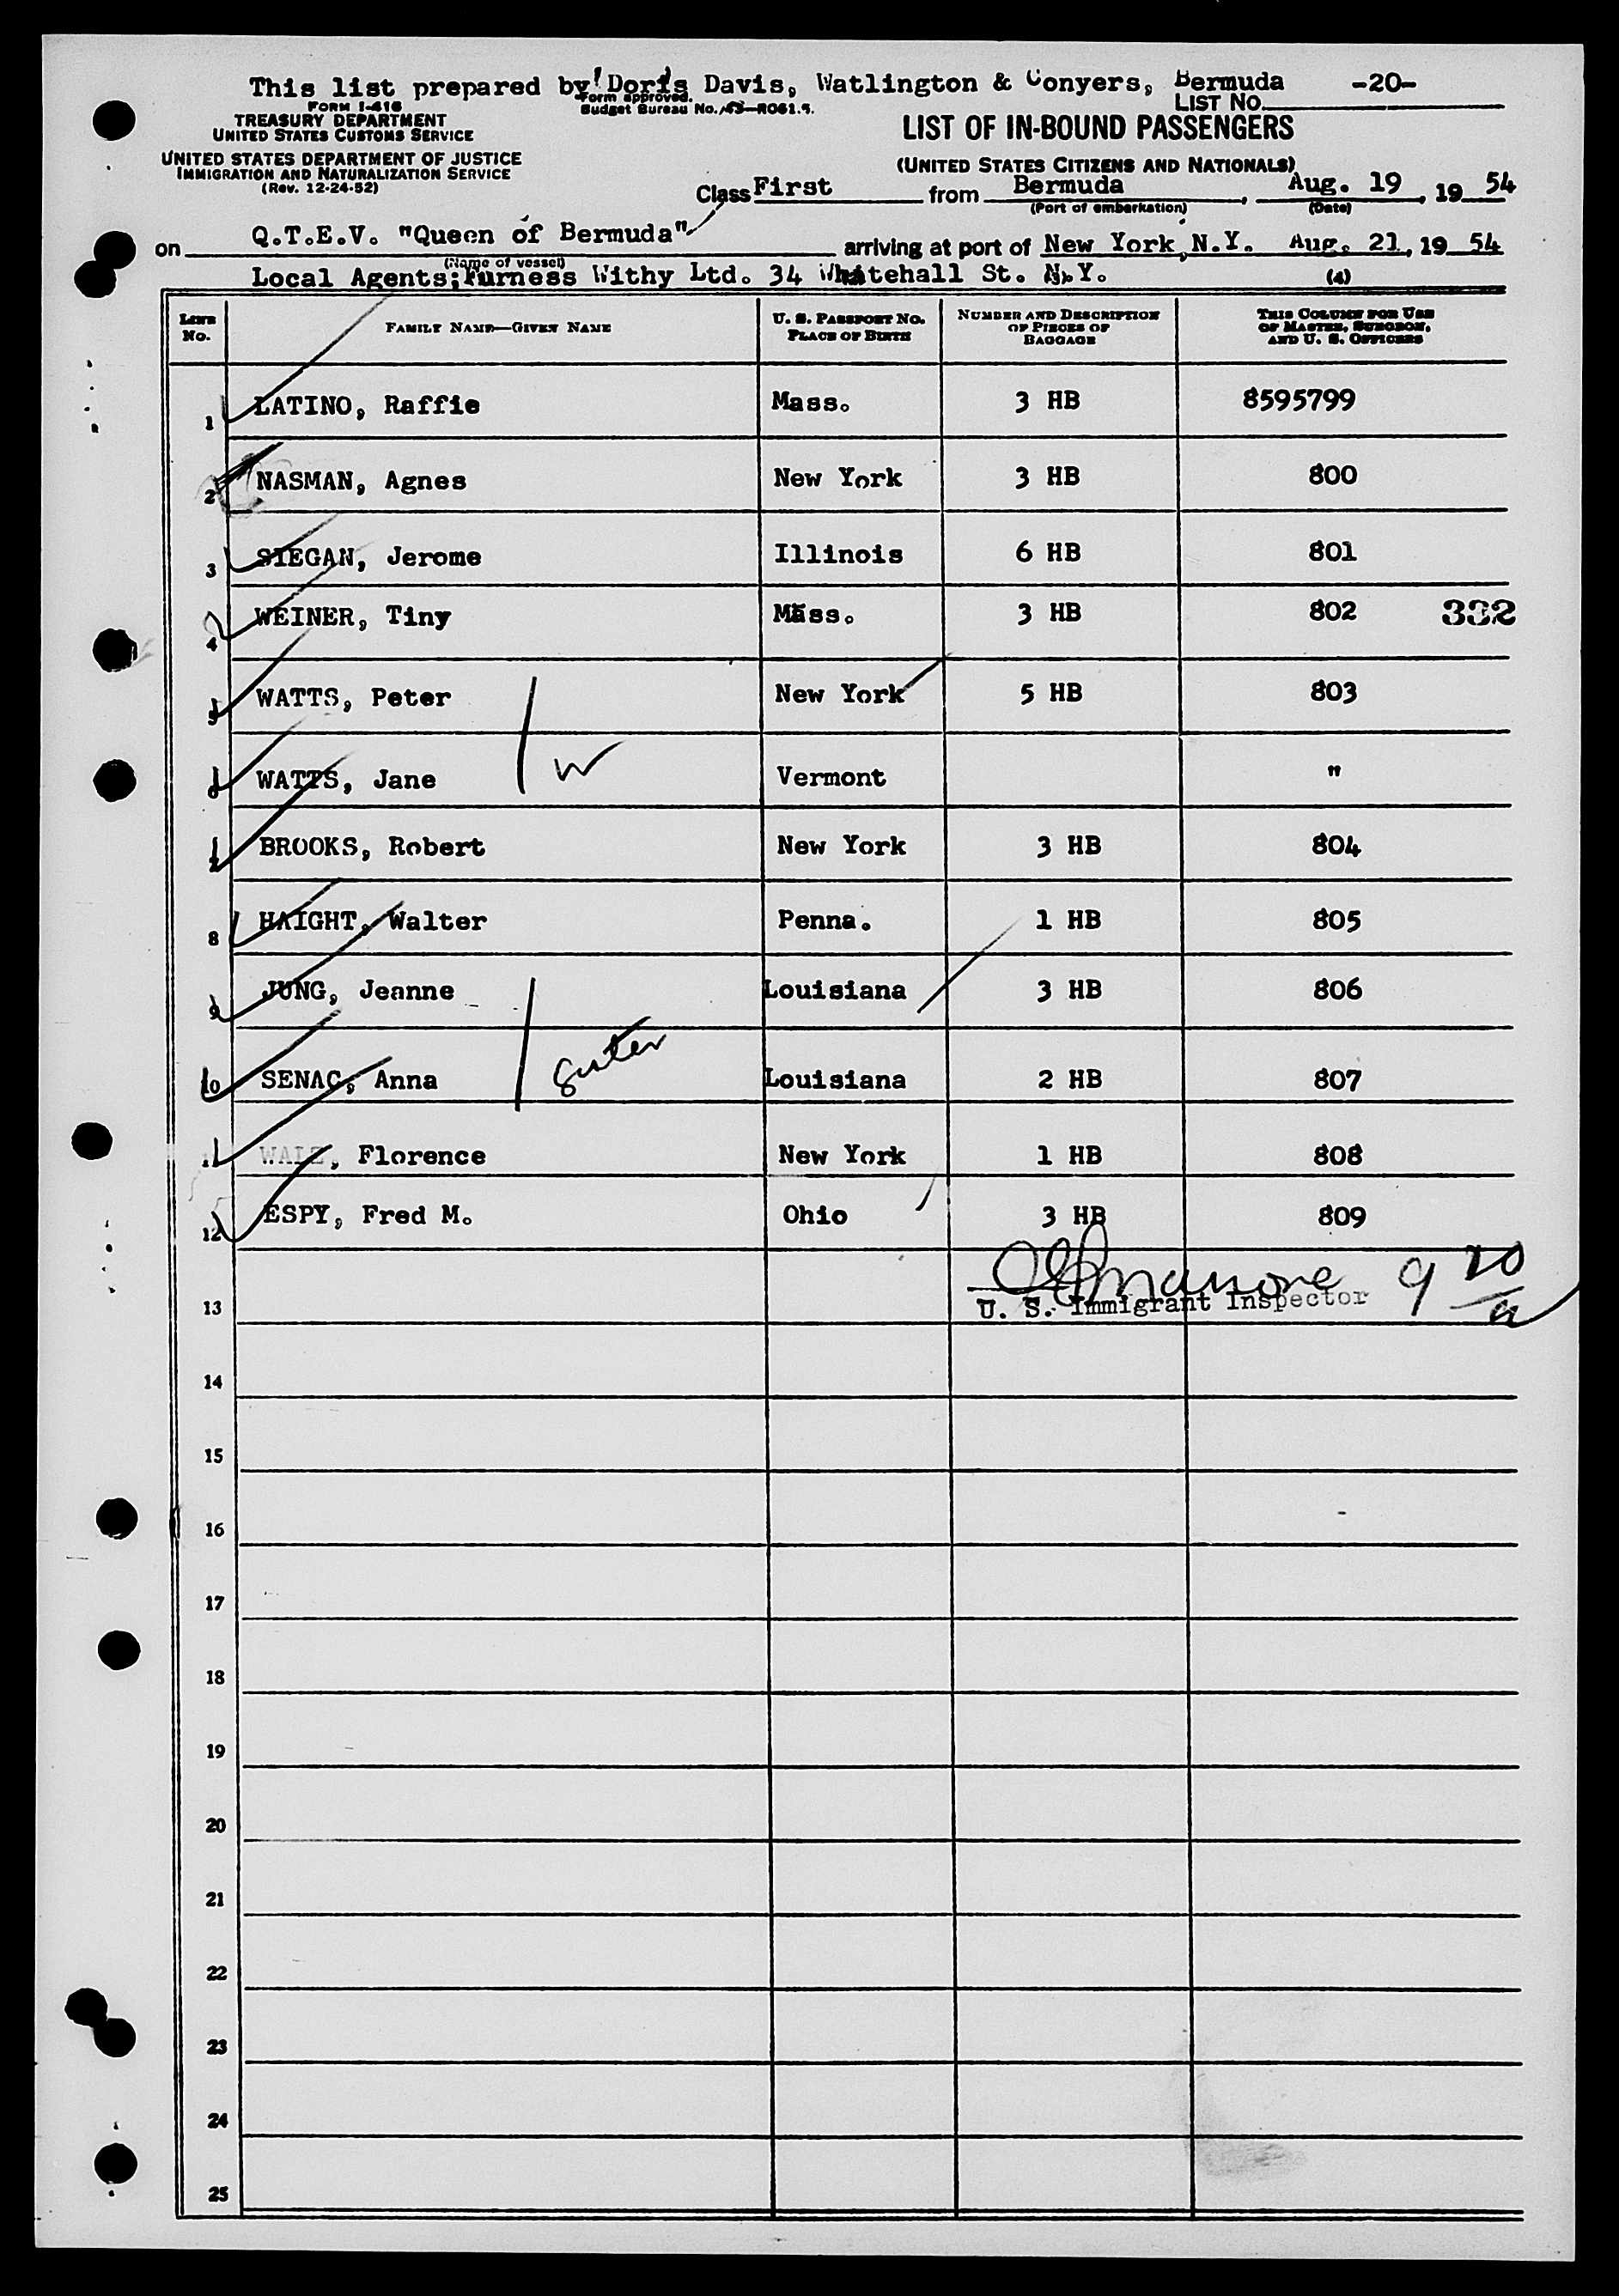 This list prepared by Doris Davis, Watlington & Conyers, Bermuda -20-
FORM I-416
Form approved.
Budget Bureau No. 43-R061.5.
LIST NO.
TREASURY DEPARTMENT
UNITED STATES CUSTOMS SERVICE
LIST OF IN-BOUND PASSENGERS
UNITED STATES DEPARTMENT OF JUSTICE
IMMIGRATION AND NATURALIZATION SERVICE
(Rev. 12-24-52)
(UNITED STATES CITIZENS AND NATIONALS)
Class First from Bermuda, Aug. 19, 19 54
(Port of embarkation) (Date)
on Q.T.E.V. "Queen of Bermuda" arriving at port of New York, N.Y. Aug. 21, 19 54
(Name of vessel)
Local Agents; Furness Withy Ltd. 34 Whitehall St. N.Y. (4)
LINE No. FAMILY NAME—GIVEN NAME U. S. PASSPORT NO. PLACE OF BIRTH NUMBER AND DESCRIPTION OF PIECES OF BAGGAGE THIS COLUMN FOR USE OF MASTER, SURGEON, AND U. S. OFFICERS
1 LATINO, Raffie Mass. 3 HB 8595799
2 NASMAN, Agnes New York 3 HB 800
3 SIEGAN, Jerome Illinois 6 HB 801
4 WEINER, Tiny Mass. 3 HB 802 332
5 WATTS, Peter New York 5 HB 803
6 WATTS, Jane W Vermont "
7 BROOKS, Robert New York 3 HB 804
8 HAIGHT, Walter Penna. 1 HB 805
9 JUNG, Jeanne Louisiana 3 HB 806
10 SENAC, Anna sister Louisiana 2 HB 807
11 , Florence New York 1 HB 808
12 ESPY, Fred M. Ohio 3 HB 809
9 20 a
13 U. S. Immigrant Inspector
14
15
16
17
18
19
20
21
22
23
24
25